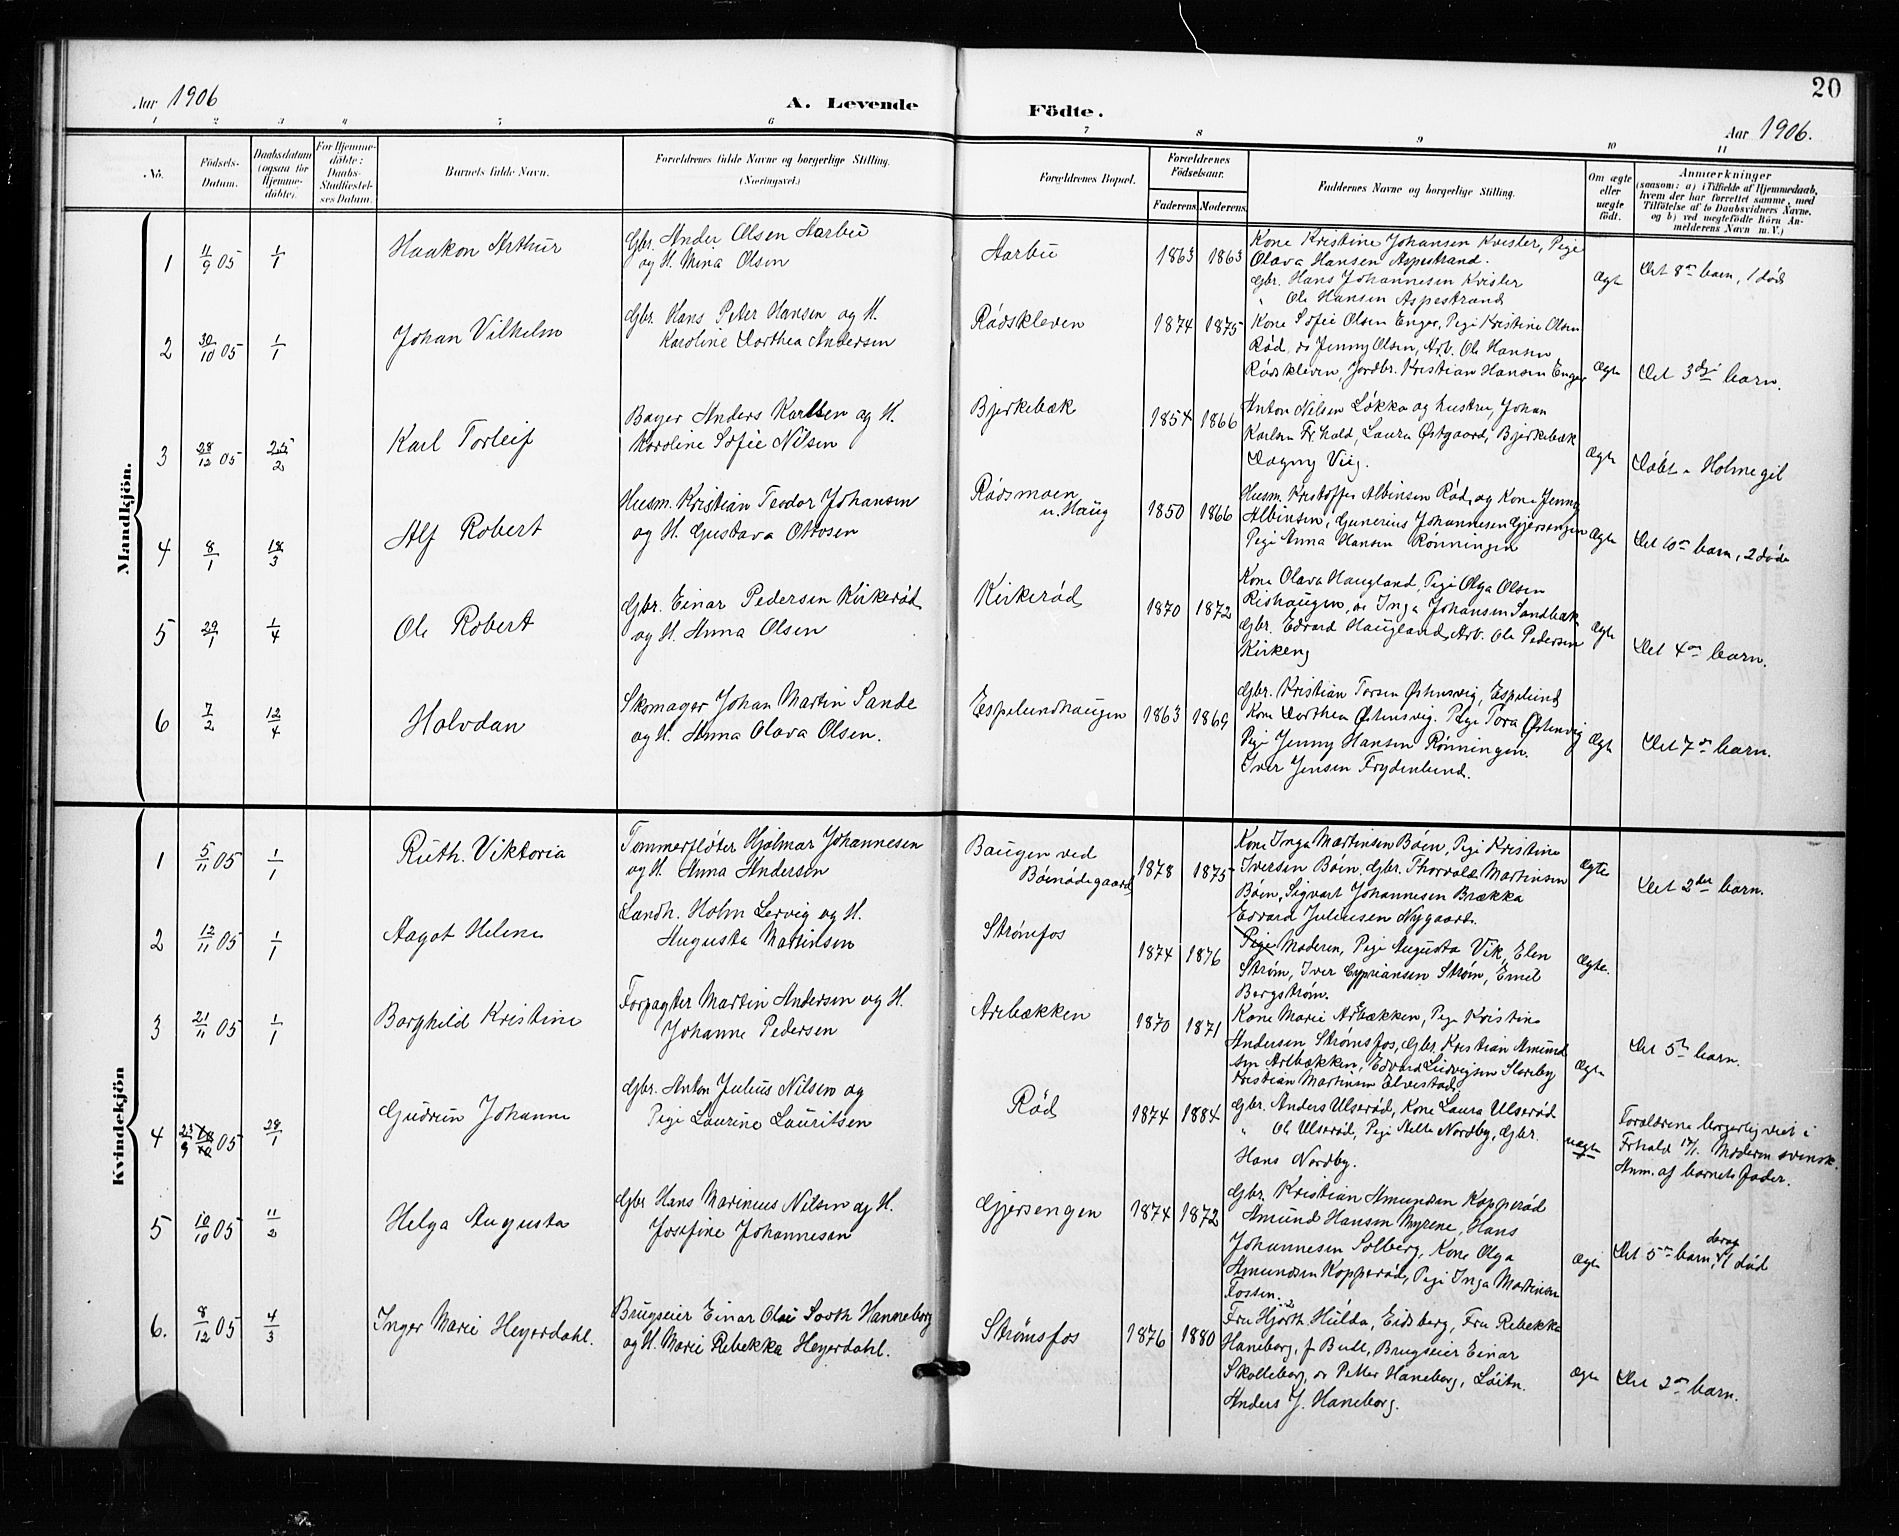 20
Aar 1906
A. Levende
Födte.
Aar 1906.
1 2 3 4 5 6 7 8 9 10 11
No.
Födsels-Datum.
Daabsdatum (ogsaa for Hjemme-döbte).
For Hjemme-döbte: Daabs-Stadfæstel-ses Datum.
Barnets fulde Navn.
Forældrenes fulde Navne og borgerlige Stilling.
(Næringsvei.)
Forældrenes Bopæl.
Forældrenes Födselsaar.
Faderens Moderens
Faddernes Navne og borgerlige Stilling.
Om ægte eller uægte födt.
Anmærkninger
(saasom: a) i Tilfælde af Hjemmedaab,
hvem der har forrettet samme, med
Tilföielse af to Daabsvidners Navne,
og b) ved uægtefödte Börn An-
melderens Navn m. V.)
Mandkjön.
1 11/9 05 1/1 Haakon Arthur
Gbr. Ander Olsen Aarbu
og H. Mina Olsen
Aarbu 1863 1863
Kone Kristine Johansen Kvister, Pige
Olava Hansen Aspestrand.
Gbr. Hans Johannesen Kvister
" Ole Hansen Aspestrand
Ægte
Det 8de barn, 1 död
2 30/10 05 1/1 Johan Vilhelm
Gbr. Hans Peter Hansen og H.
Karoline Dorthea Andersen
Rødskleven 1874 1875
Kone Sofie Olsen Enger, Pige Kristine Olsen
Rød, do Jenny Olsen, Arb. Ole Hansen
Rødskleven, Jordbr. Kristian Hansen Enger
Ægte
Det 3die barn.
3 28/12 05 25/2 Karl Torleif
Bager Anders Karlsen og H.
Karoline Sofie Nilsen
Bjerkebæk 1854 1866
Anton Nilsen Løkka og hustru, Johan
Karlsen Fr.hald, Laura Østgaard, Bjerkebæk
Dagny Viig.
Ægte
Døbt i Holmegil
4 8/1 18/3 Alf Robert
Husm. Kristian Teodor Johansen
og H. Gustava Ottosen
Rødsmoen
u. Haug
1850 1866
Husm. Kristoffer Albinsen Rød, og Kone Jenny
Albinsen, Gunerius Johannesen Gjersengen
Pige Anna Hansen Rønningen
Ægte
Det 10de barn, 2 døde
5 29/1 1/4 Ole Robert
Gbr. Einar Pedersen Kirkerød
og H. Anna Olsen
Kirkerød 1870 1872
Kone Olava Haugland, Pige Olga Olsen
Rishaugen, do Inga Johansen Sandbæk
Gbr. Edvard Haugland, Arb. Ole Pedersen
Kirkeng
Ægte
Det 4de barn.
6 7/2 12/4 Halvdan
Skomager Johan Martin Sande
og H. Anna Olava Olsen.
Espelundhaugen 1863 1869
Gbr. Kristian Torsen Østensvig, Espelund
Kone Dorthea Østensvig. Pige Tora Østensvig
Pige Jenny Hansen Rønningen.
Iver Jensen Frydenlund.
Ægte
Det 7de barn.
Kvindekjön
1 5/11 05 1/1 Ruth Viktoria
Tømmerfløter Hjalmar Johannesen
og H. Anna Andersen
Baugen ved
Böenødegaard
1878 1875
Kone Inga Martinsen Böen, Pige Kristine
Iversen Böen, Gbr. Thorvald Martinsen
Böen, Sigvart Johannesen Brækka
Edvard Juliusen Nygaard.
Ægte
Det 2det barn.
2 12/11 05 1/1 Aagot Helene
Landh. Holm Lervig og H.
Augusta Martinsen
Strømfos 1874 1876
Pige Moderen, Pige Augusta Vik, Elen
Strøm, Iver Cypriansen Strøm, Emil
Bergstrøm.
Ægte.
3 21/11 05 1/1 Borghild Kristine
Forpagter Martin Andersen og H.
Johanne Pedersen
Arebækken 1870 1871
Kone Marie Arebækken, Pige Kristine
Andersen Strømsfos, Gbr. Kristian Amund
sen Arebækken, Edvard Ludvigsen Sloreby
Kristian Martinsen Elvestad
Ægte
Det 5te barn.
4 23/9 18/10 05 28/1 Gudrun Johanne
Gbr. Anton Julius Nilsen og
Pige Laurine Lauritsen
Rød 1874 1884
Gbr. Anders Ulserød, Kone Laura Ulserød
" Ole Ulserød, Pige Nordby, Gbr.
Hans Nordby.
uægte
Forældrene borgerlig viet i
Frhald 17/1. Moderen svensk.
Anm. af barnets fader.
5 10/10 05 11/2 Helga Augusta
Gbr Hans Marinius Nilsen og H.
Josefine Johannesen
Gjersengen 1874 1872
Gbr. Kristian Amundsen Kopperød
Amund Hansen Myrene, Hans
Johannesen Solberg, Kone Olga
Amundsen Kopperød, Pige Inga Martinsen
Fossen.
Ægte
Det 5te barn, deraf 1 død
6. 8/12 05 4/3 Inger Marie Heyerdahl.
Brugseier Einar Olai Sooth Hanneborg
og H. Marie Rebekka Heyerdahl.
Strømsfos 1876 1880
Fru Hjorth Hulda, Eidsberg, Fru Rebekka
Haneborg, f Bull, Brugseier Einar
Skolleborg, do Petter Haneborg, Løitn.
Anders J. Haneborg.
Ægte
Det 2det barn.